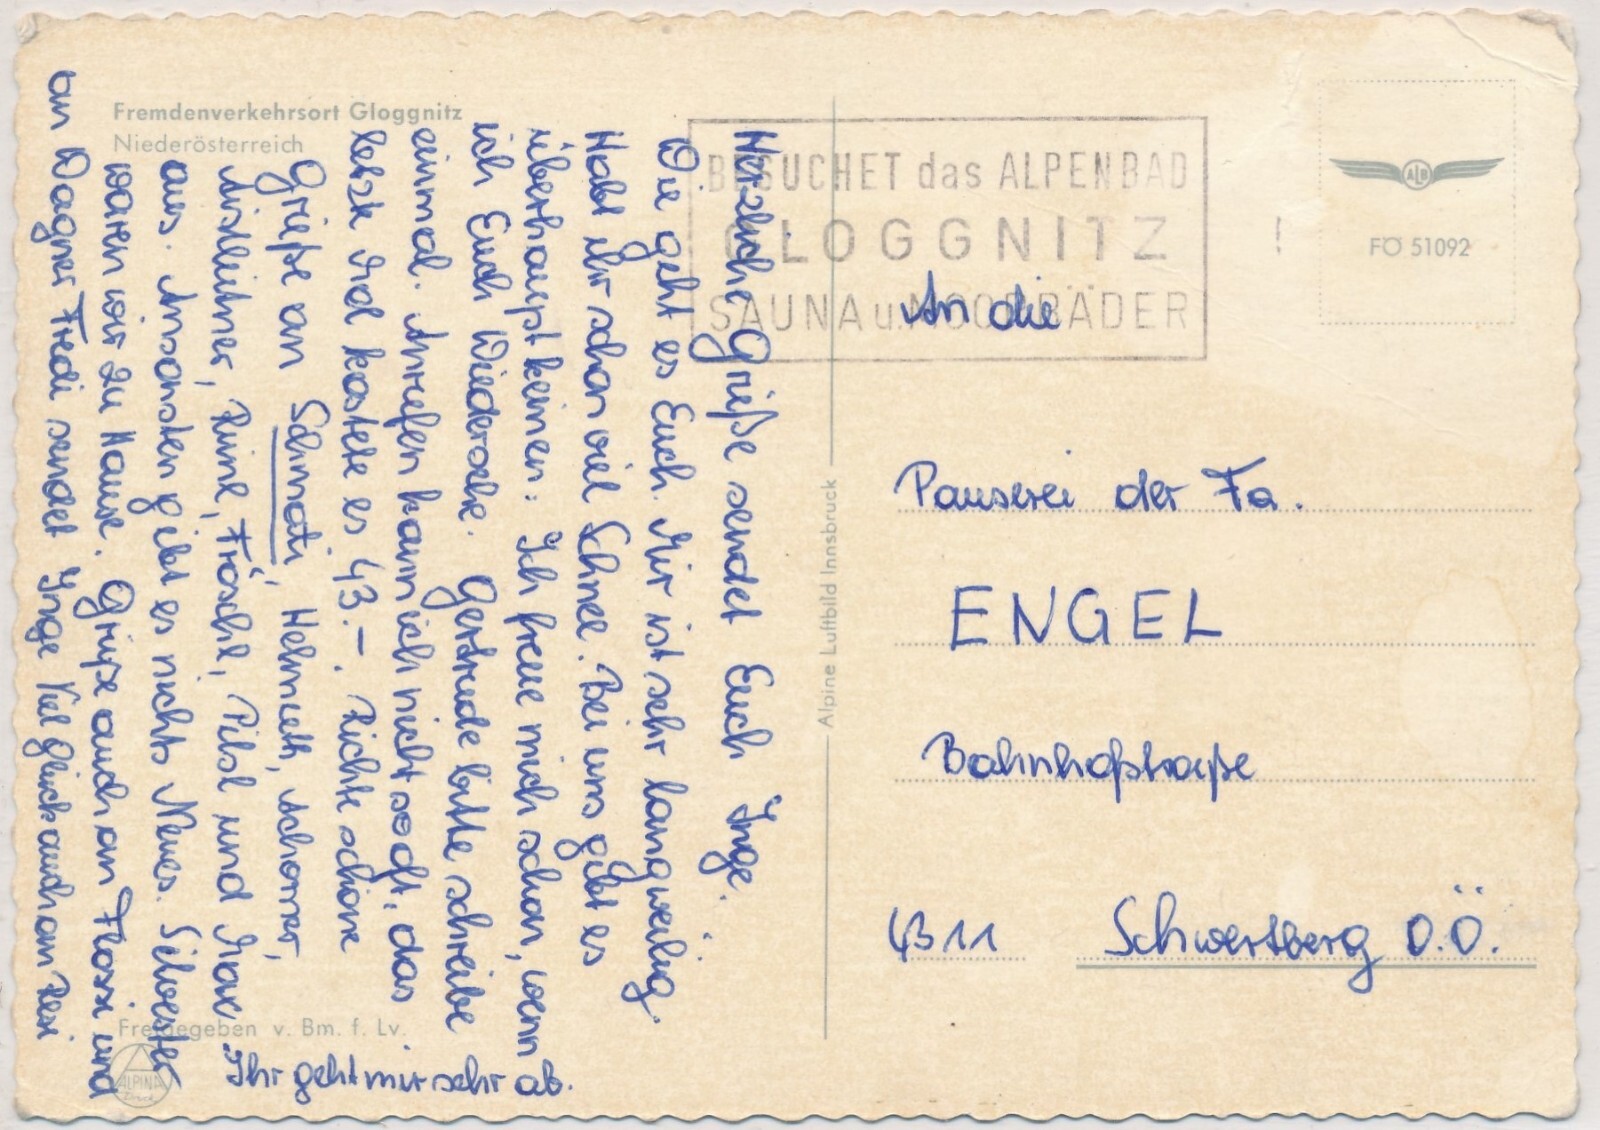 Fremdenverkehrsort Gloggnitz
Niederösterreich
BESUCHET das ALPENBAD
GLOGGNITZ !
SAUNA u. MOORBÄDER
ALB
FÖ 51092
Alpine Luftbild Innsbruck
Freigegeben v. Bm. f. Lv.
ALPINA
Druck
An die
Pauserei der Fa.
ENGEL
Bahnhofstraße
4311 Schwertberg O.Ö.
Herzliche Grüße sendet Euch Inge.
Wie geht es Euch. Mir ist sehr langweilig.
Habt ihr schon viel Schnee. Bei uns gibt es
überhaupt keinen: Ich freue mich schon, wenn
ich Euch Wiedersehe. Gertrude bitte schreibe
einmal. Anrufen kann ich nicht so oft, das
letzte Mal kostete es 43.-. Richte schöne
Grüße an Schnati, Helmuth, Achorner,
Aistleitner, Fröschl, Pilsl und Max
aus. Ansonsten gibt es nichts Neues. Silvester
waren wir zu Hause. Grüße auch an Flossi und
an Wagner Fredi sendet Inge Viel Glück auch an Resi
Ihr geht mir sehr ab.